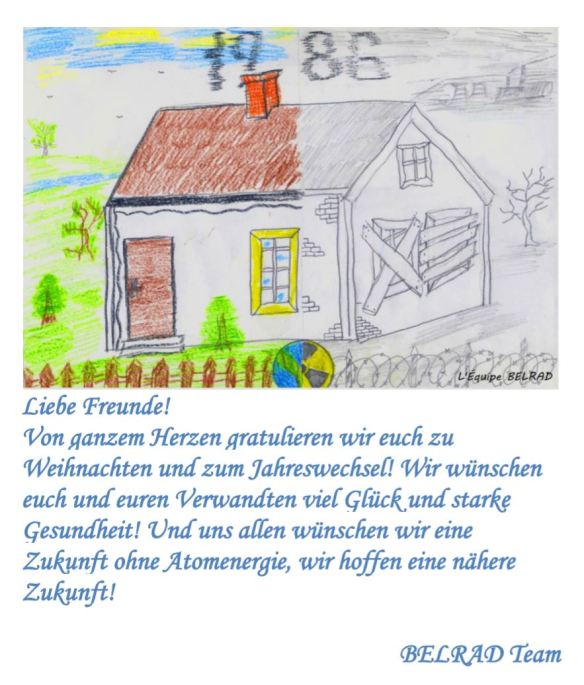 1986
L'Équipe BELRAD
Liebe Freunde!
Von ganzem Herzen gratulieren wir euch zu
Weihnachten und zum Jahreswechsel! Wir wünschen
euch und euren Verwandten viel Glück und starke
Gesundheit! Und uns allen wünschen wir eine
Zukunft ohne Atomenergie, wir hoffen eine nähere
Zukunft!
BELRAD Team